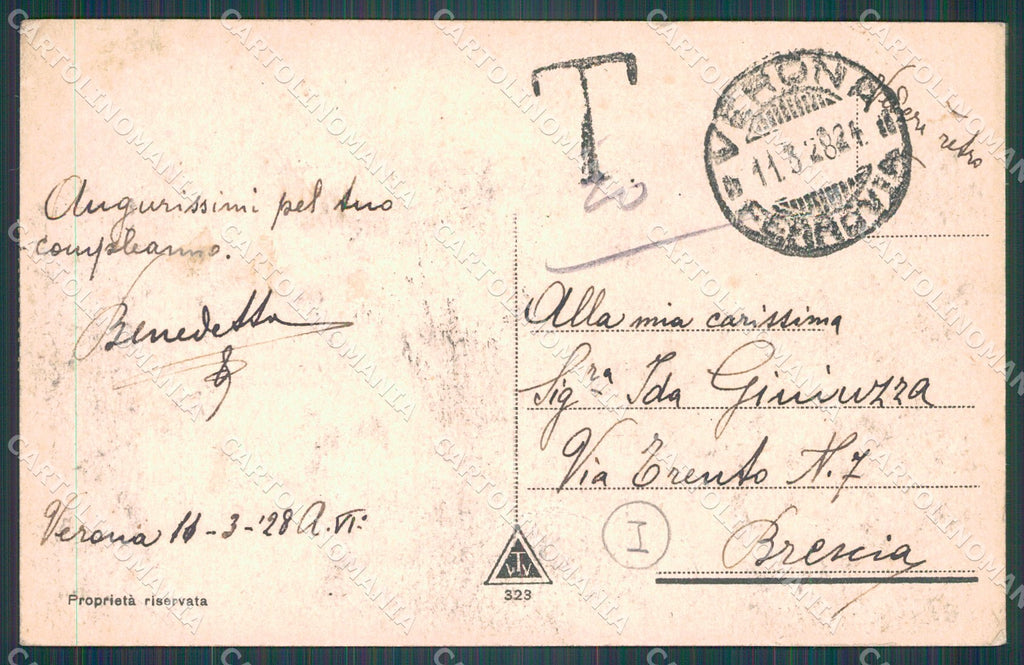 T
20
VERONA
11.3.28 24
FERROVIA
Vederi retro
Augurissimi pel tuo
compleanno.
Benedetta
Verona 11-3-'28 A. VI:
Proprietà riservata
VTV
323
Alla mia carissima
Sig.ra Ida
Via Trento N. 7
I
Brescia
CARTOLINOMANIA